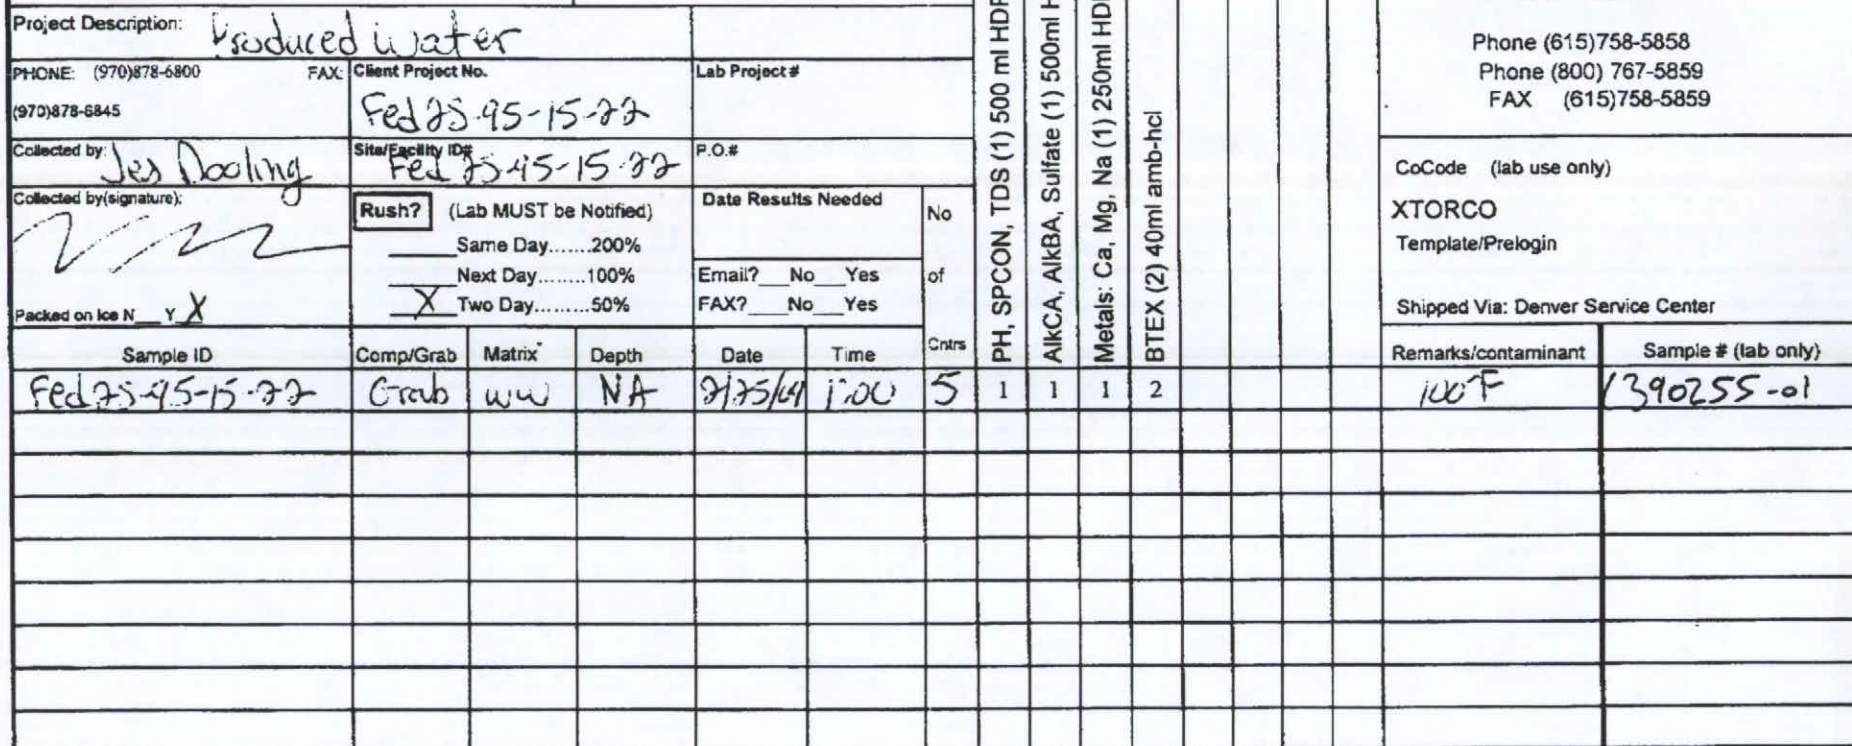 Project Description: Produced Water
PHONE: (970)878-6800 FAX:
(970)878-6845
Client Project No.
Fed 25-95-15-22
Lab Project #
Collected by: Jes Dooling
Site/Facility ID#
Fed 25-95-15-22
P.O.#
Collected by(signature):
Packed on Ice N__ Y X
Rush? (Lab MUST be Notified)
Same Day.......200%
Next Day........100%
X Two Day.........50%
Date Results Needed
Email? No Yes
FAX? No Yes
No
of
Cntrs
PH, SPCON, TDS (1) 500 ml HDP
AlkCA, AlkBA, Sulfate (1) 500ml H
Metals: Ca, Mg, Na (1) 250ml HDP
BTEX (2) 40ml amb-hcl
Phone (615)758-5858
Phone (800) 767-5859
FAX (615)758-5859
CoCode (lab use only)
XTORCO
Template/Prelogin
Shipped Via: Denver Service Center
Sample ID Comp/Grab Matrix* Depth Date Time Remarks/contaminant Sample # (lab only)
Fed 25-95-15-22 Grab WW NA 1:00 5 1 1 1 2 100°F L390255-01